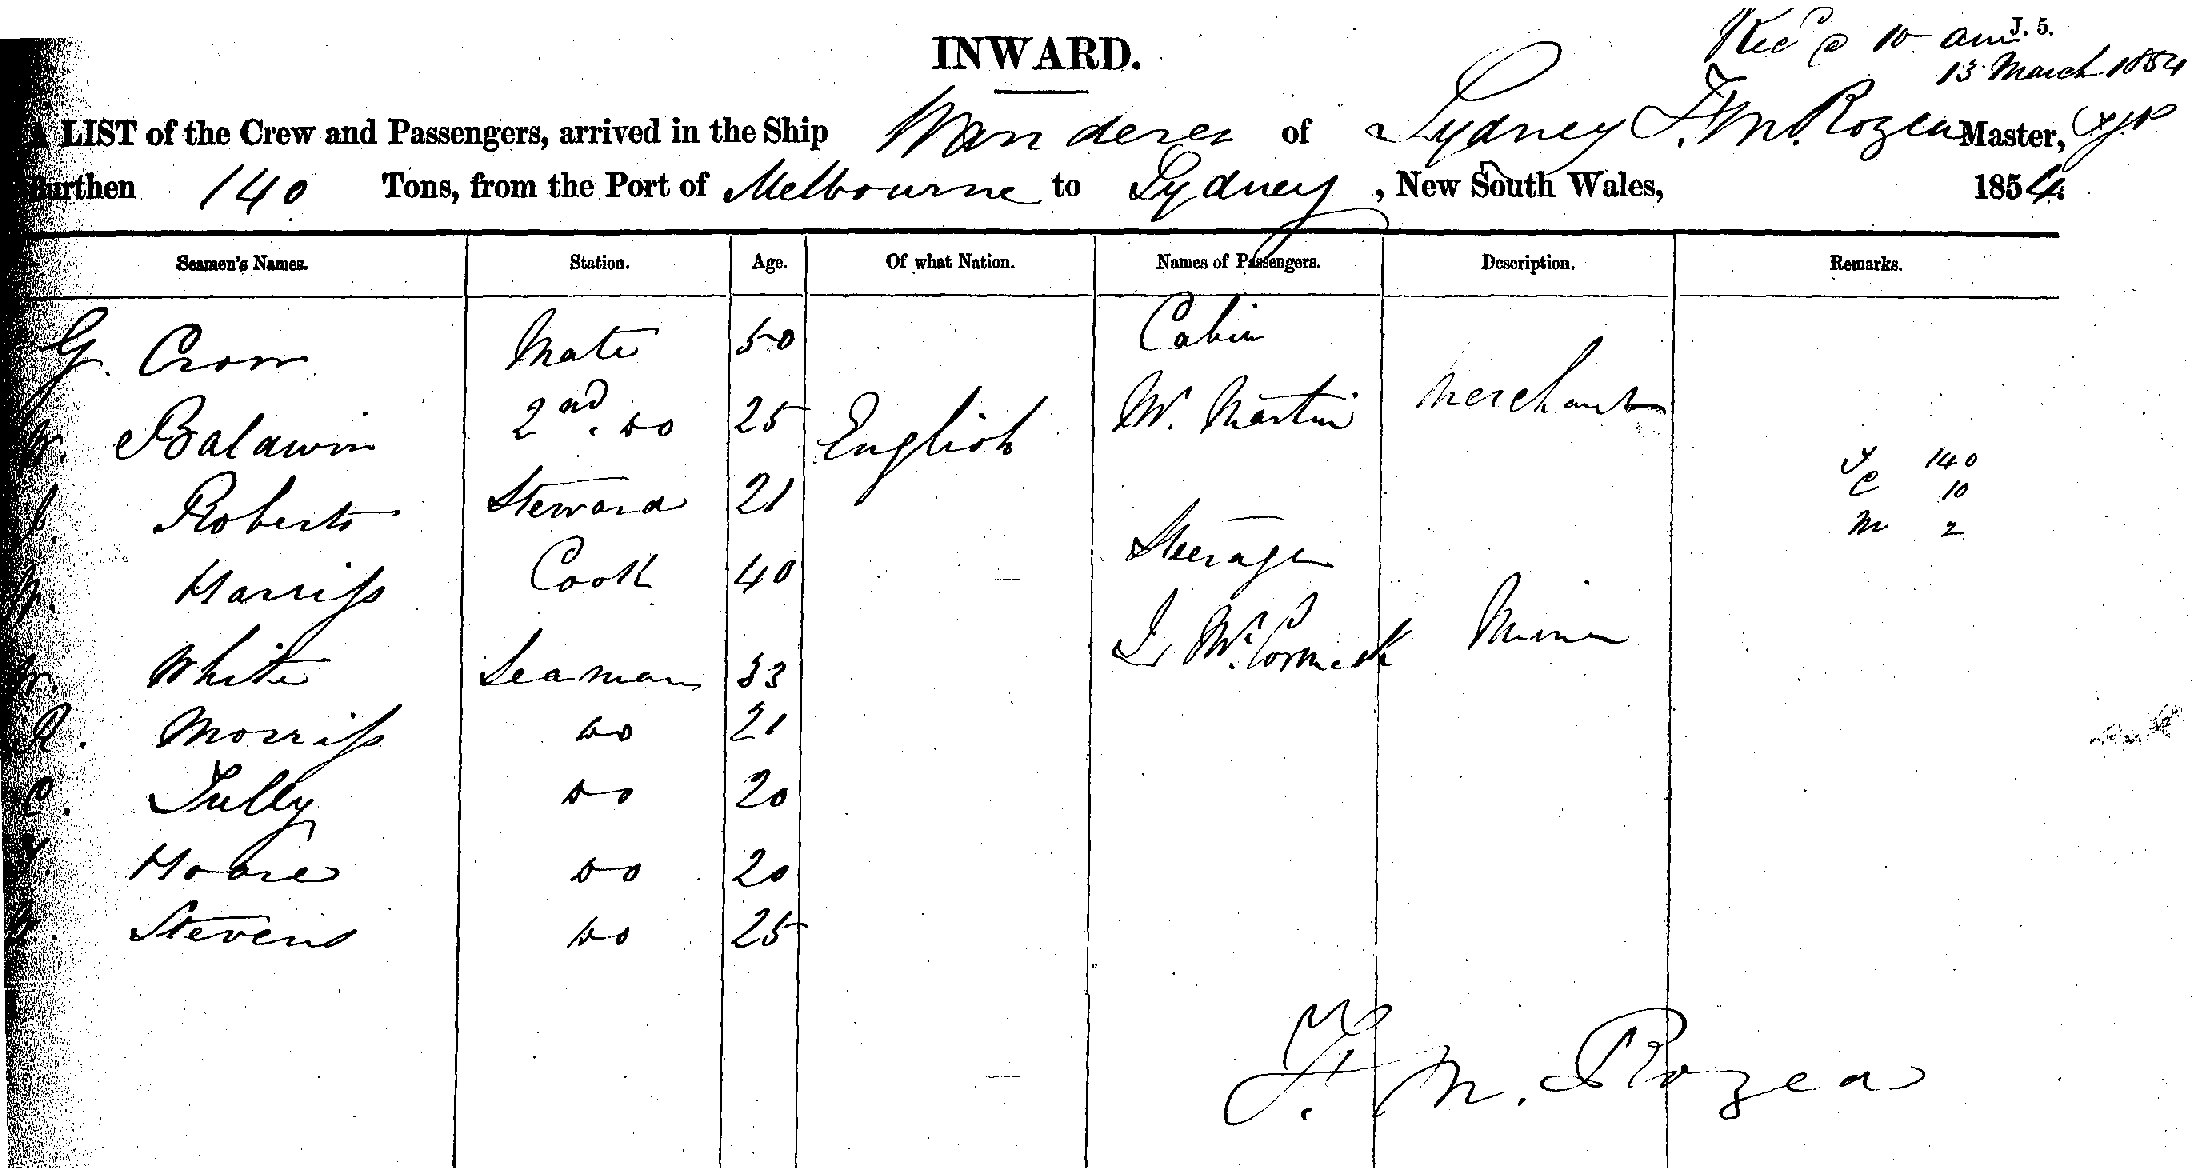 Recd @ 10 am J. 5.
13 March 1854
INWARD.
A LIST of the Crew and Passengers, arrived in the Ship Wanderer of Sydney F. M. Rozea Master,
Burthen 140 Tons, from the Port of Melbourne to Sydney, New South Wales, 1854.
Seamen's Names. Station. Age. Of what Nation. Names of Passengers. Description. Remarks.
G. Crow Mate 50 Cabin
Baldwin 2nd. do 25 English W. Martin Merchant
Roberts Steward 21 T 140
C 10
M 2
Harriss Cook 40 Steerage
White Seaman 33 McCormick Miner
R. Morriss do 21
C. Tully do 20
Hoare do 20
Stevens do 25
F. M. Rozea